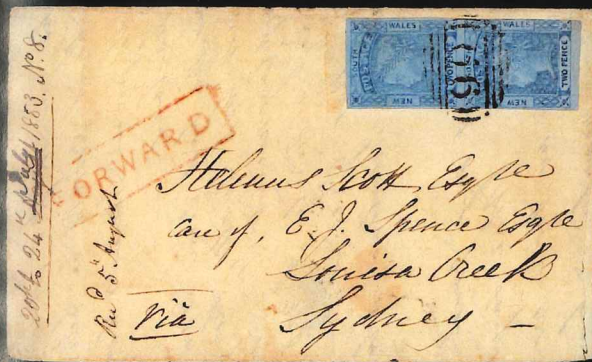 SOUTH
WALES
NEW
TWO PENCE
WALES
NEW
TWO PENCE
FORWARD
20th to 24th July 1853. No 8.
Recd 5th August
Helenus Scott Esqre
care of, E. J. Spence Esqre
Louisa Creek
via Sydney